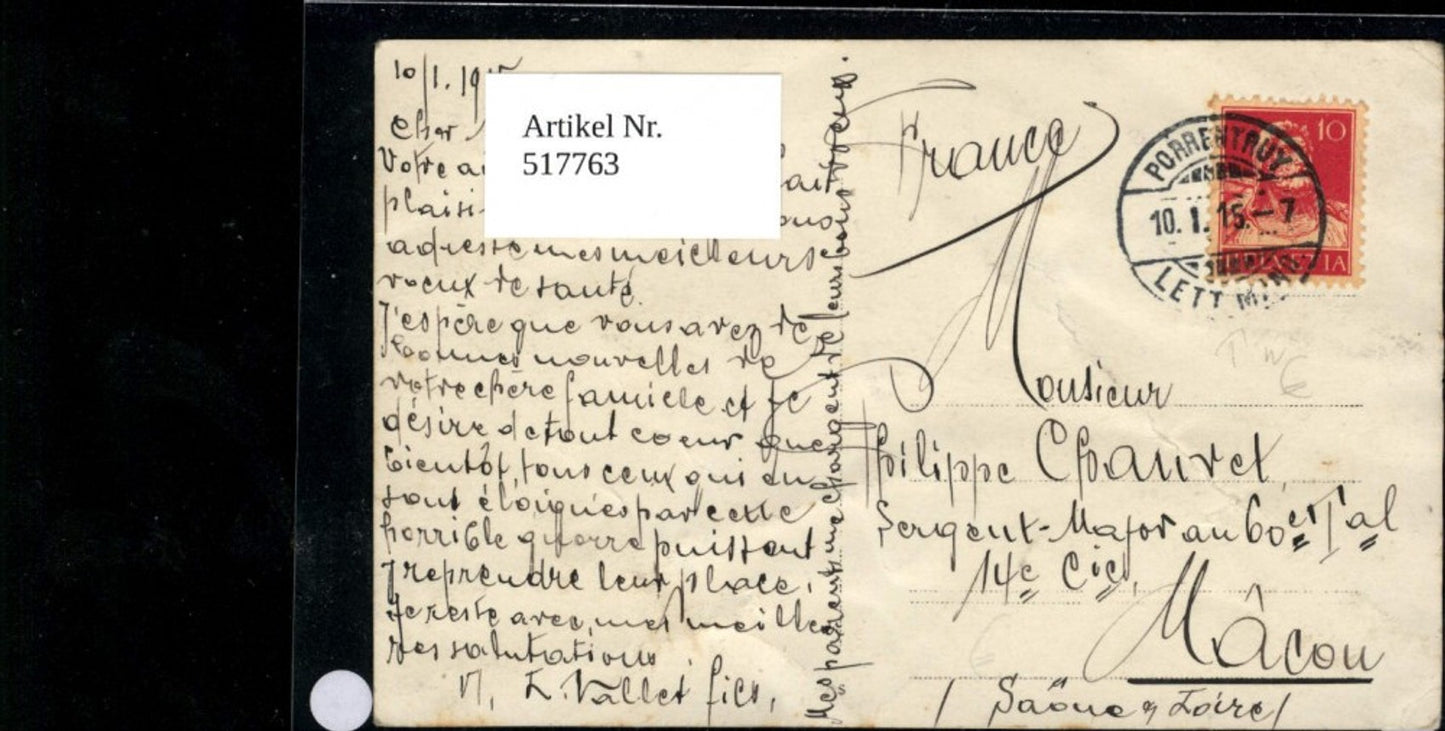 10/1. 1915
Cher
Artikel Nr.
517763
Votre
plaisi ous
adresse mes meilleurs
voeux de santé.
J'espère que vous avez de
bonnes nouvelles de
votre chère famille et je
désire de tout coeur que
bientôt, tous ceux qui en
sont éloignés par cette
horrible guerre puissent
y reprendre leur place.
Je reste avec mes meilleu
res salutations
L. Vallet fils.
Mes parents me chargent de leurs bons voeux.
France
PORRENTRUY
10. I. 15. – 7
LETT
10
HELVETIA
Monsieur
Philippe Chauvet
Sergent-Major au 60er Tal
14e Cie,
Mâcon
(Saône & Loire)